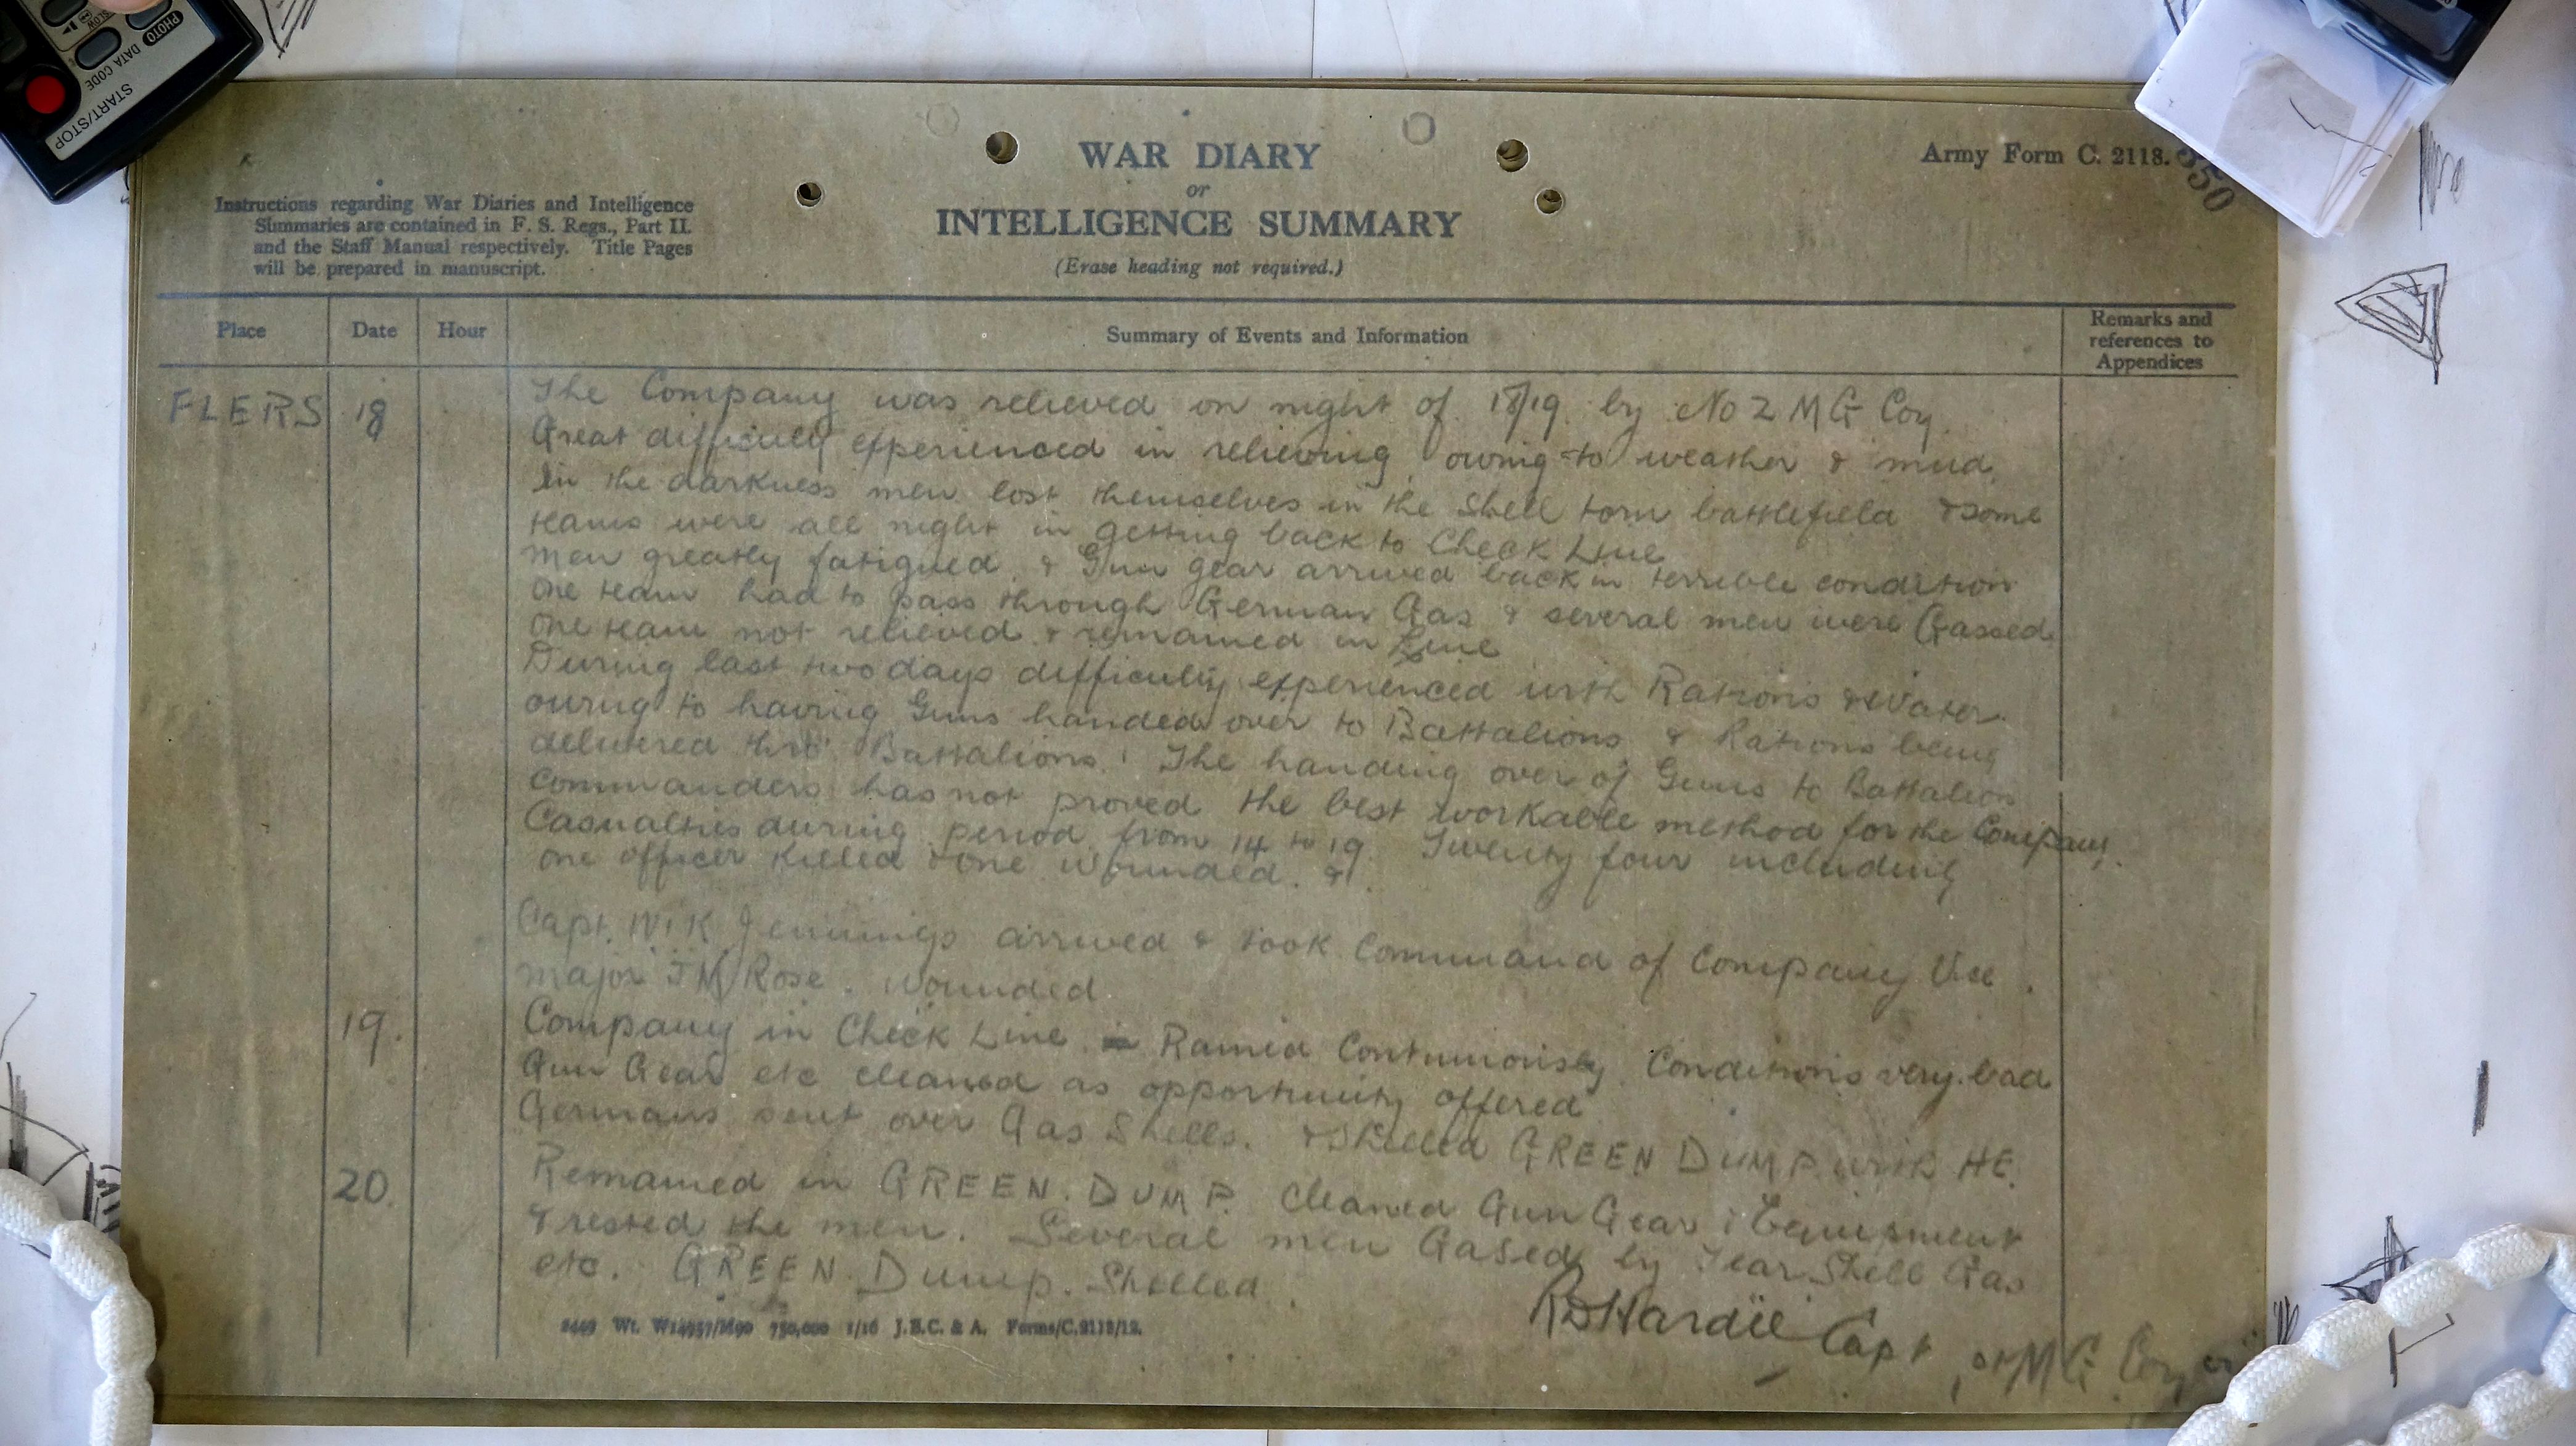 START/STOP
PHOTO DATA CODE
SLOW
WAR DIARY
or
INTELLIGENCE SUMMARY
(Erase heading not required.)
Army Form C. 2118.
350
Instructions regarding War Diaries and Intelligence
Summaries are contained in F. S. Regs., Part II.
and the Staff Manual respectively. Title Pages
will be prepared in manuscript.
Place
Date
Hour
Summary of Events and Information
Remarks and
references to
Appendices
FLERS 18 The Company was relieved on night of 18/19 by No 2 M G Coy.
Great difficulty experienced in relieving owing to weather & mud.
In the darkness men lost themselves in the Shell torn battlefield & some
teams were all night in getting back to Check Line
men greatly fatigued & Gun gear arrived back in terrible condition
One team had to pass through German Gas & several men were Gassed
One team not relieved & remained in Line
During last two days difficulty experienced with Rations & Water
owing to having Guns handed over to Battalions & Rations being
delivered thro' Battalions. The handing over of Guns to Battalion
Commanders has not proved the best workable method for the Company.
Casualties during period from 14 to 19 Twenty four including
one officer killed & one wounded. &
Capt. W K Jennings arrived & took Command of Company Vice
Major J M Rose. Wounded
19. Company in Check Line Rained Continuously Conditions very bad
Gun Gear etc cleaned as opportunity offered
Germans sent over Gas Shells. & Shelled GREEN DUMP with HE.
20. Remained in GREEN. DUMP. Cleaned Gun Gear & Equipment
& rested the men. Several men Gased by Tear Shell Gas
etc. GREEN Dump. Shelled.
RDHardie Capt
M G Coy
2449 Wt. W14957/M90 750,000 1/16 J.B.C. & A. Forms/C.2118/12.